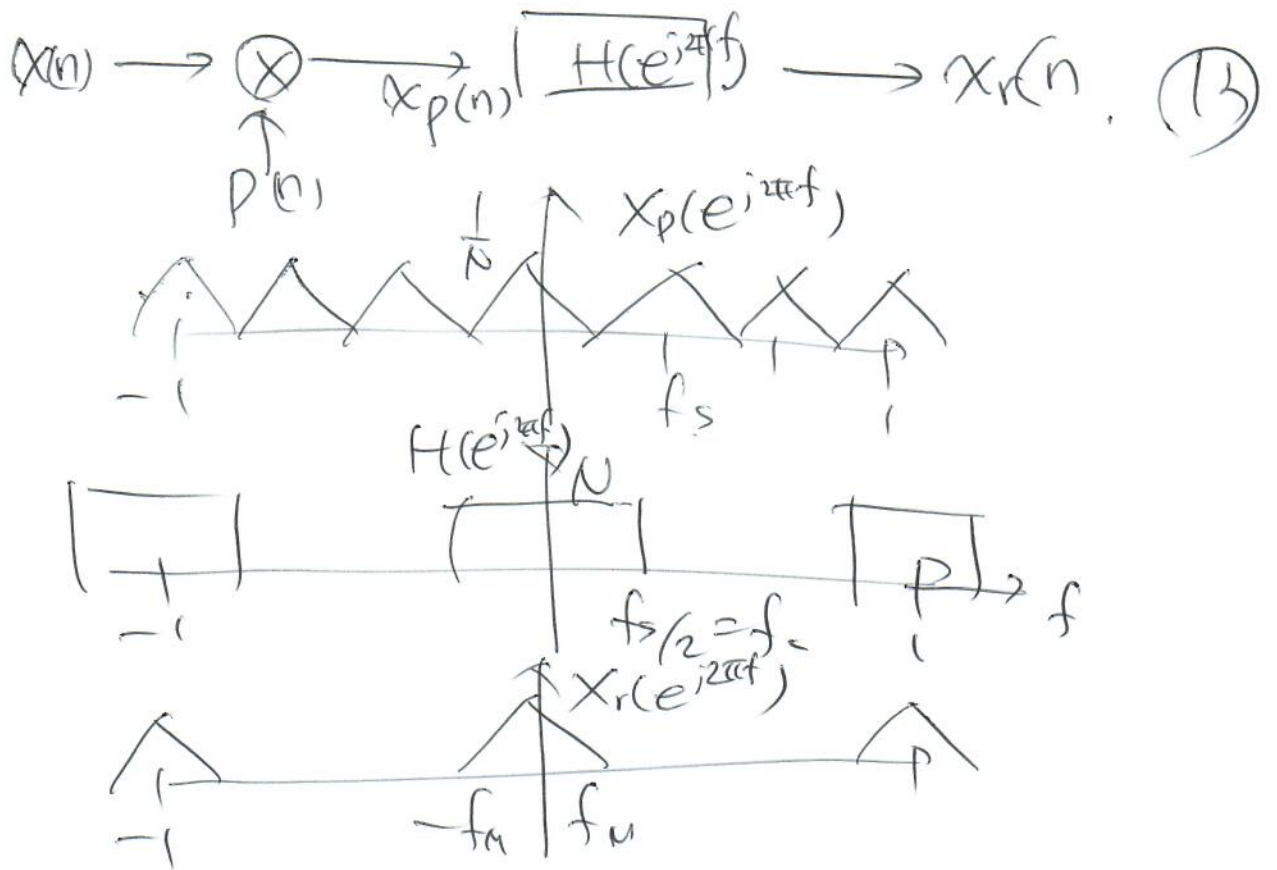 x(n) → ⊗ → xp(n) H(e^{j2πf}) → xr(n . 13
p(n)
1/N Xp(e^{j2πf})
-1 fs 1
H(e^{j2πf}) N
-1 fs/2 = fc 1 f
Xr(e^{j2πf})
-1 -fM fM